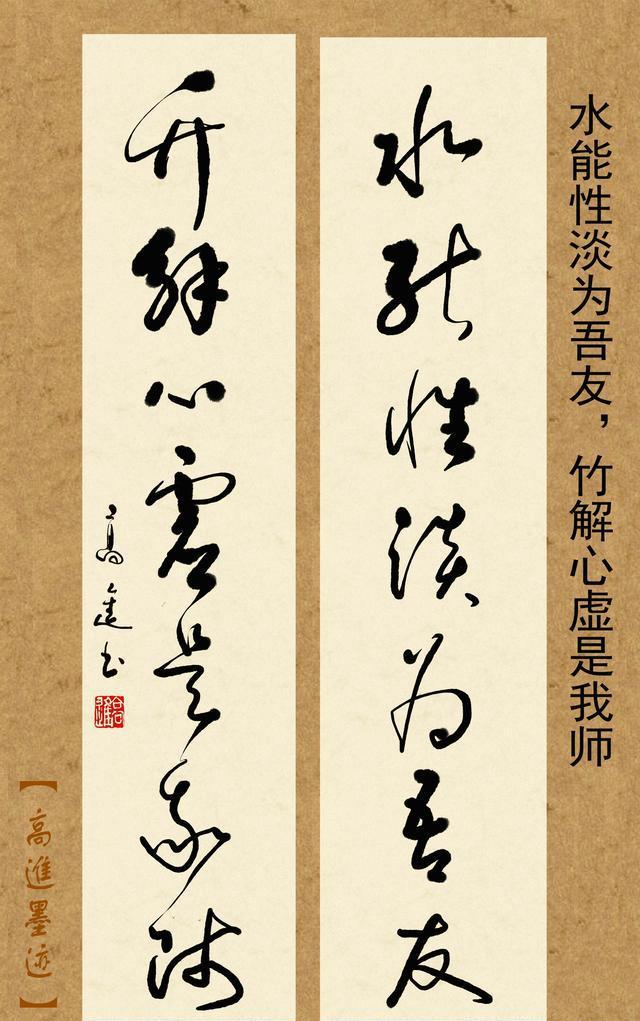 水能性淡为吾友，竹解心虚是我师
水能性淡为吾友
竹解心虚是我师
高進书
【高進墨迹】